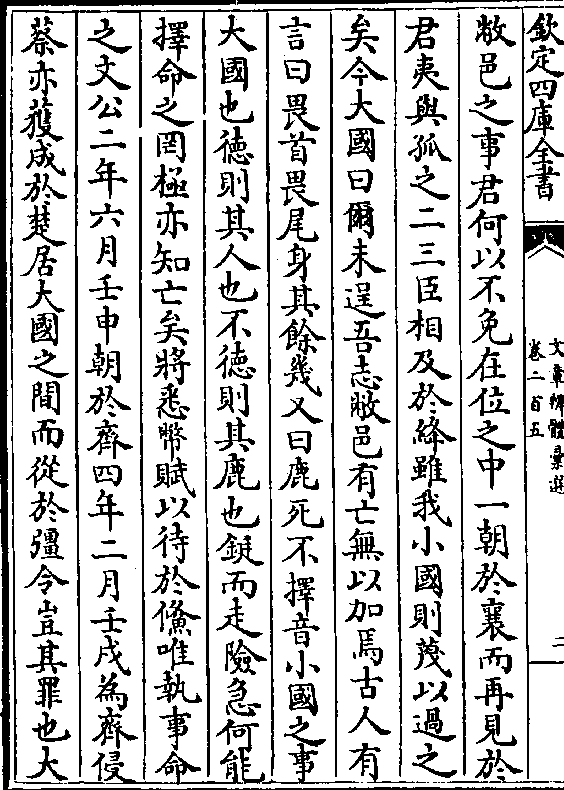 欽定四庫全書
文章辨體彙選
卷二百五
二
敝邑之事君何以不免在位之中一朝於襄而再見於
君夷與孤之二三臣相及於絳雖我小國則蔑以過之
矣今大國曰爾未逞吾志敝邑有亡無以加焉古人有
言曰畏首畏尾身其餘幾又曰鹿死不擇音小國之事
大國也德則其人也不德則其鹿也鋌而走險急何能
擇命之罔極亦知亡矣將悉幣賦以待於鯈唯執事命
之文公二年六月壬申朝於齊四年二月壬戌為齊侵
蔡亦獲成於楚居大國之間而從於彊令豈其罪也大